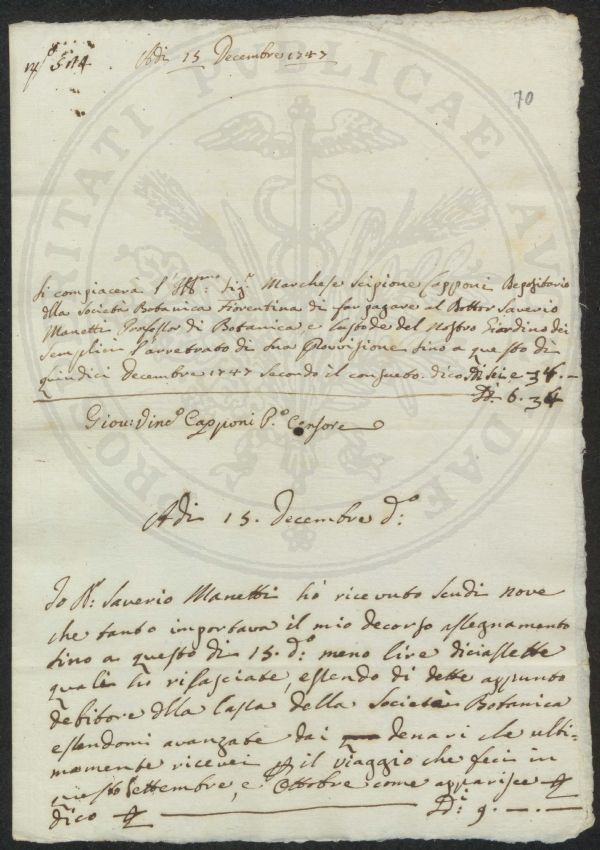 Adi 15 Decembre 1747
70
Si compiacerà l'Ill.mo Sig.r Marchese Scipione Capponi Depositario
della Società Botanica Fiorentina di far pagare al Dottor Saverio
Manetti Professor di Botanica e Custode del Nostro Giardino dei
Semplici l'arretrato di sua Provvisione sino a questo dì
quindici Decembre 1747 secondo il consueto. dico
6. 34
Giov: Vinc.o Capponi P.o Censore
Adi 15. Decembre d.o
Io D.r Saverio Manetti hò ricevuto Scudi nove
che tanto importava il mio decorso assegnamento
sino a questo dì 15. d.o meno lire diciassette
quali hò rilasciate, essendo di dette appunto
debitore della Cassa della Società Botanica
essendomi avanzate dai denari che ulti-
mamente ricevei il viaggio che feci in
questo Settembre, e Ottobre come apparisce
dico 9. —. —
PROSPERITATI PUBLICAE AUGENDAE